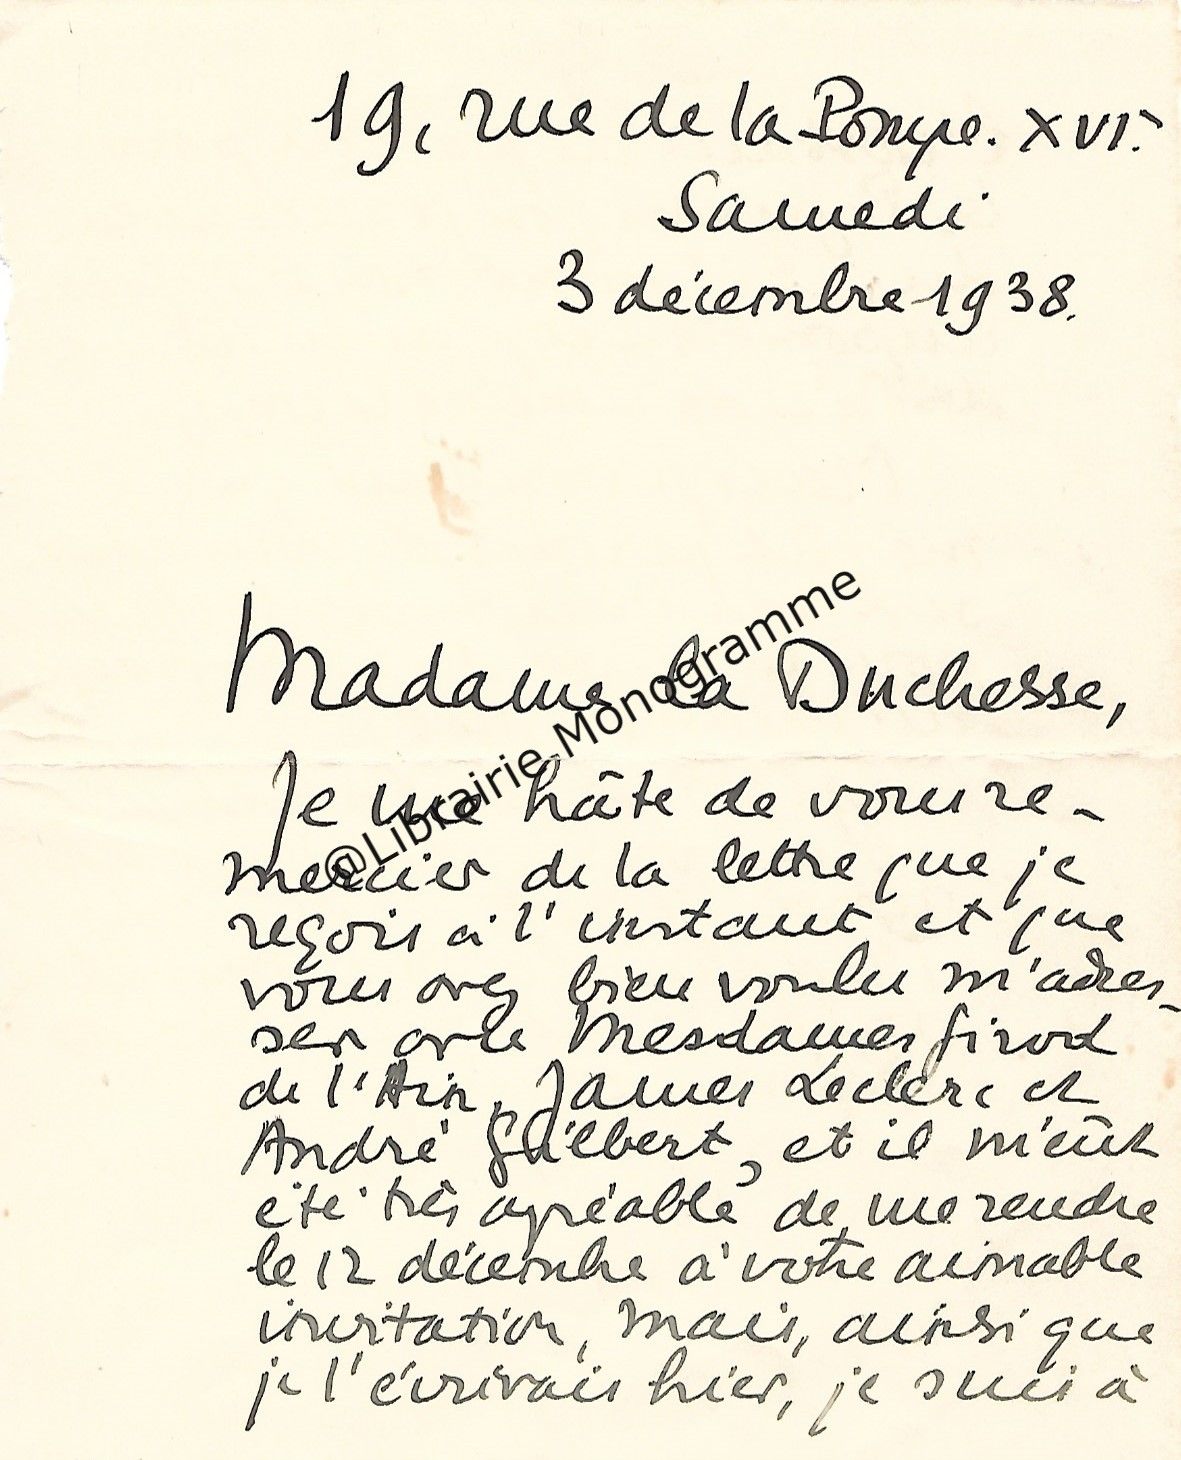 19, rue de la Pompe. XVIe
Samedi
3 décembre 1938.
@Librairie Monogramme
Madame la Duchesse,
Je me hâte de vous re-
mercier de la lettre que je
reçois à l'instant et que
vous avez bien voulu m'adres-
ser avec Mesdames Girod
de l'Ain, James Leclerc et
André Guilbert, et il m'eût
été très agréable de me rendre
le 12 décembre à votre aimable
invitation, mais, ainsi que
je l'écrivais hier, je suis à